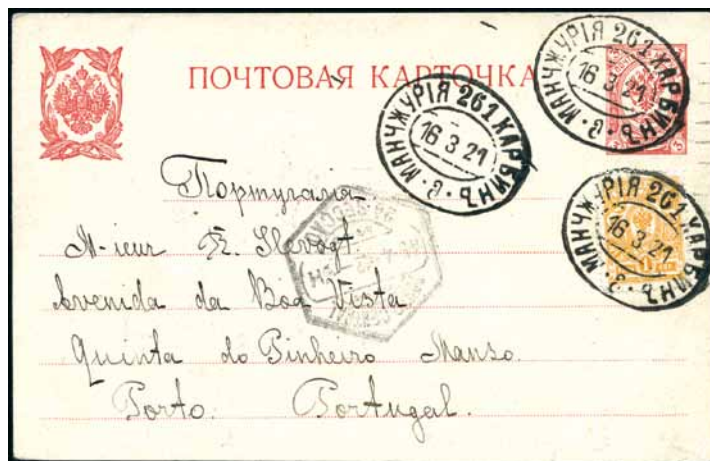 ПОЧТОВАЯ КАРТОЧКА
МАНЧЖУРІЯ 261 ХАРБИНЪ
16 3 21
МАНЧЖУРІЯ 261 ХАРБИНЪ
16 3 21
МАНЧЖУРІЯ 261 ХАРБИНЪ
16 3 21
Португалія.
M-ieur Slevogt.
Avenida da Boa Vista
Quinta do Pinheiro Manso.
Porto. Portugal.